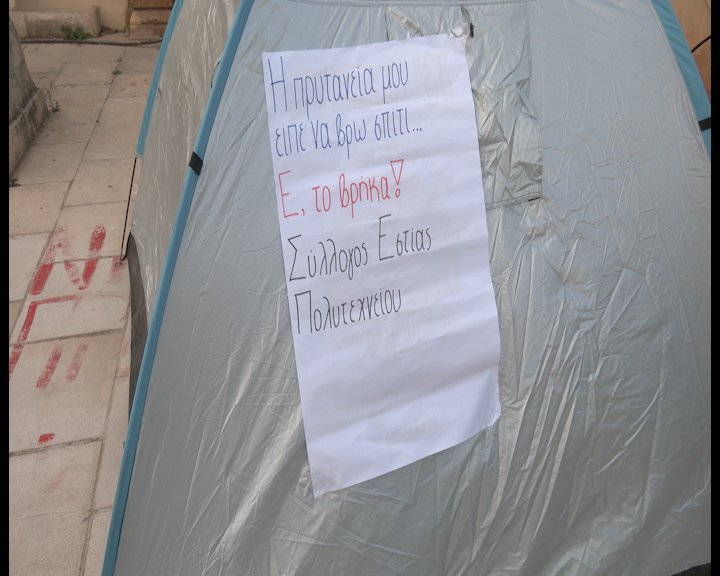 Η πρυτανεία μου
είπε να βρω σπίτι...
Ε, το βρήκα!
Σύλλογος Εστίας
Πολυτεχνείου